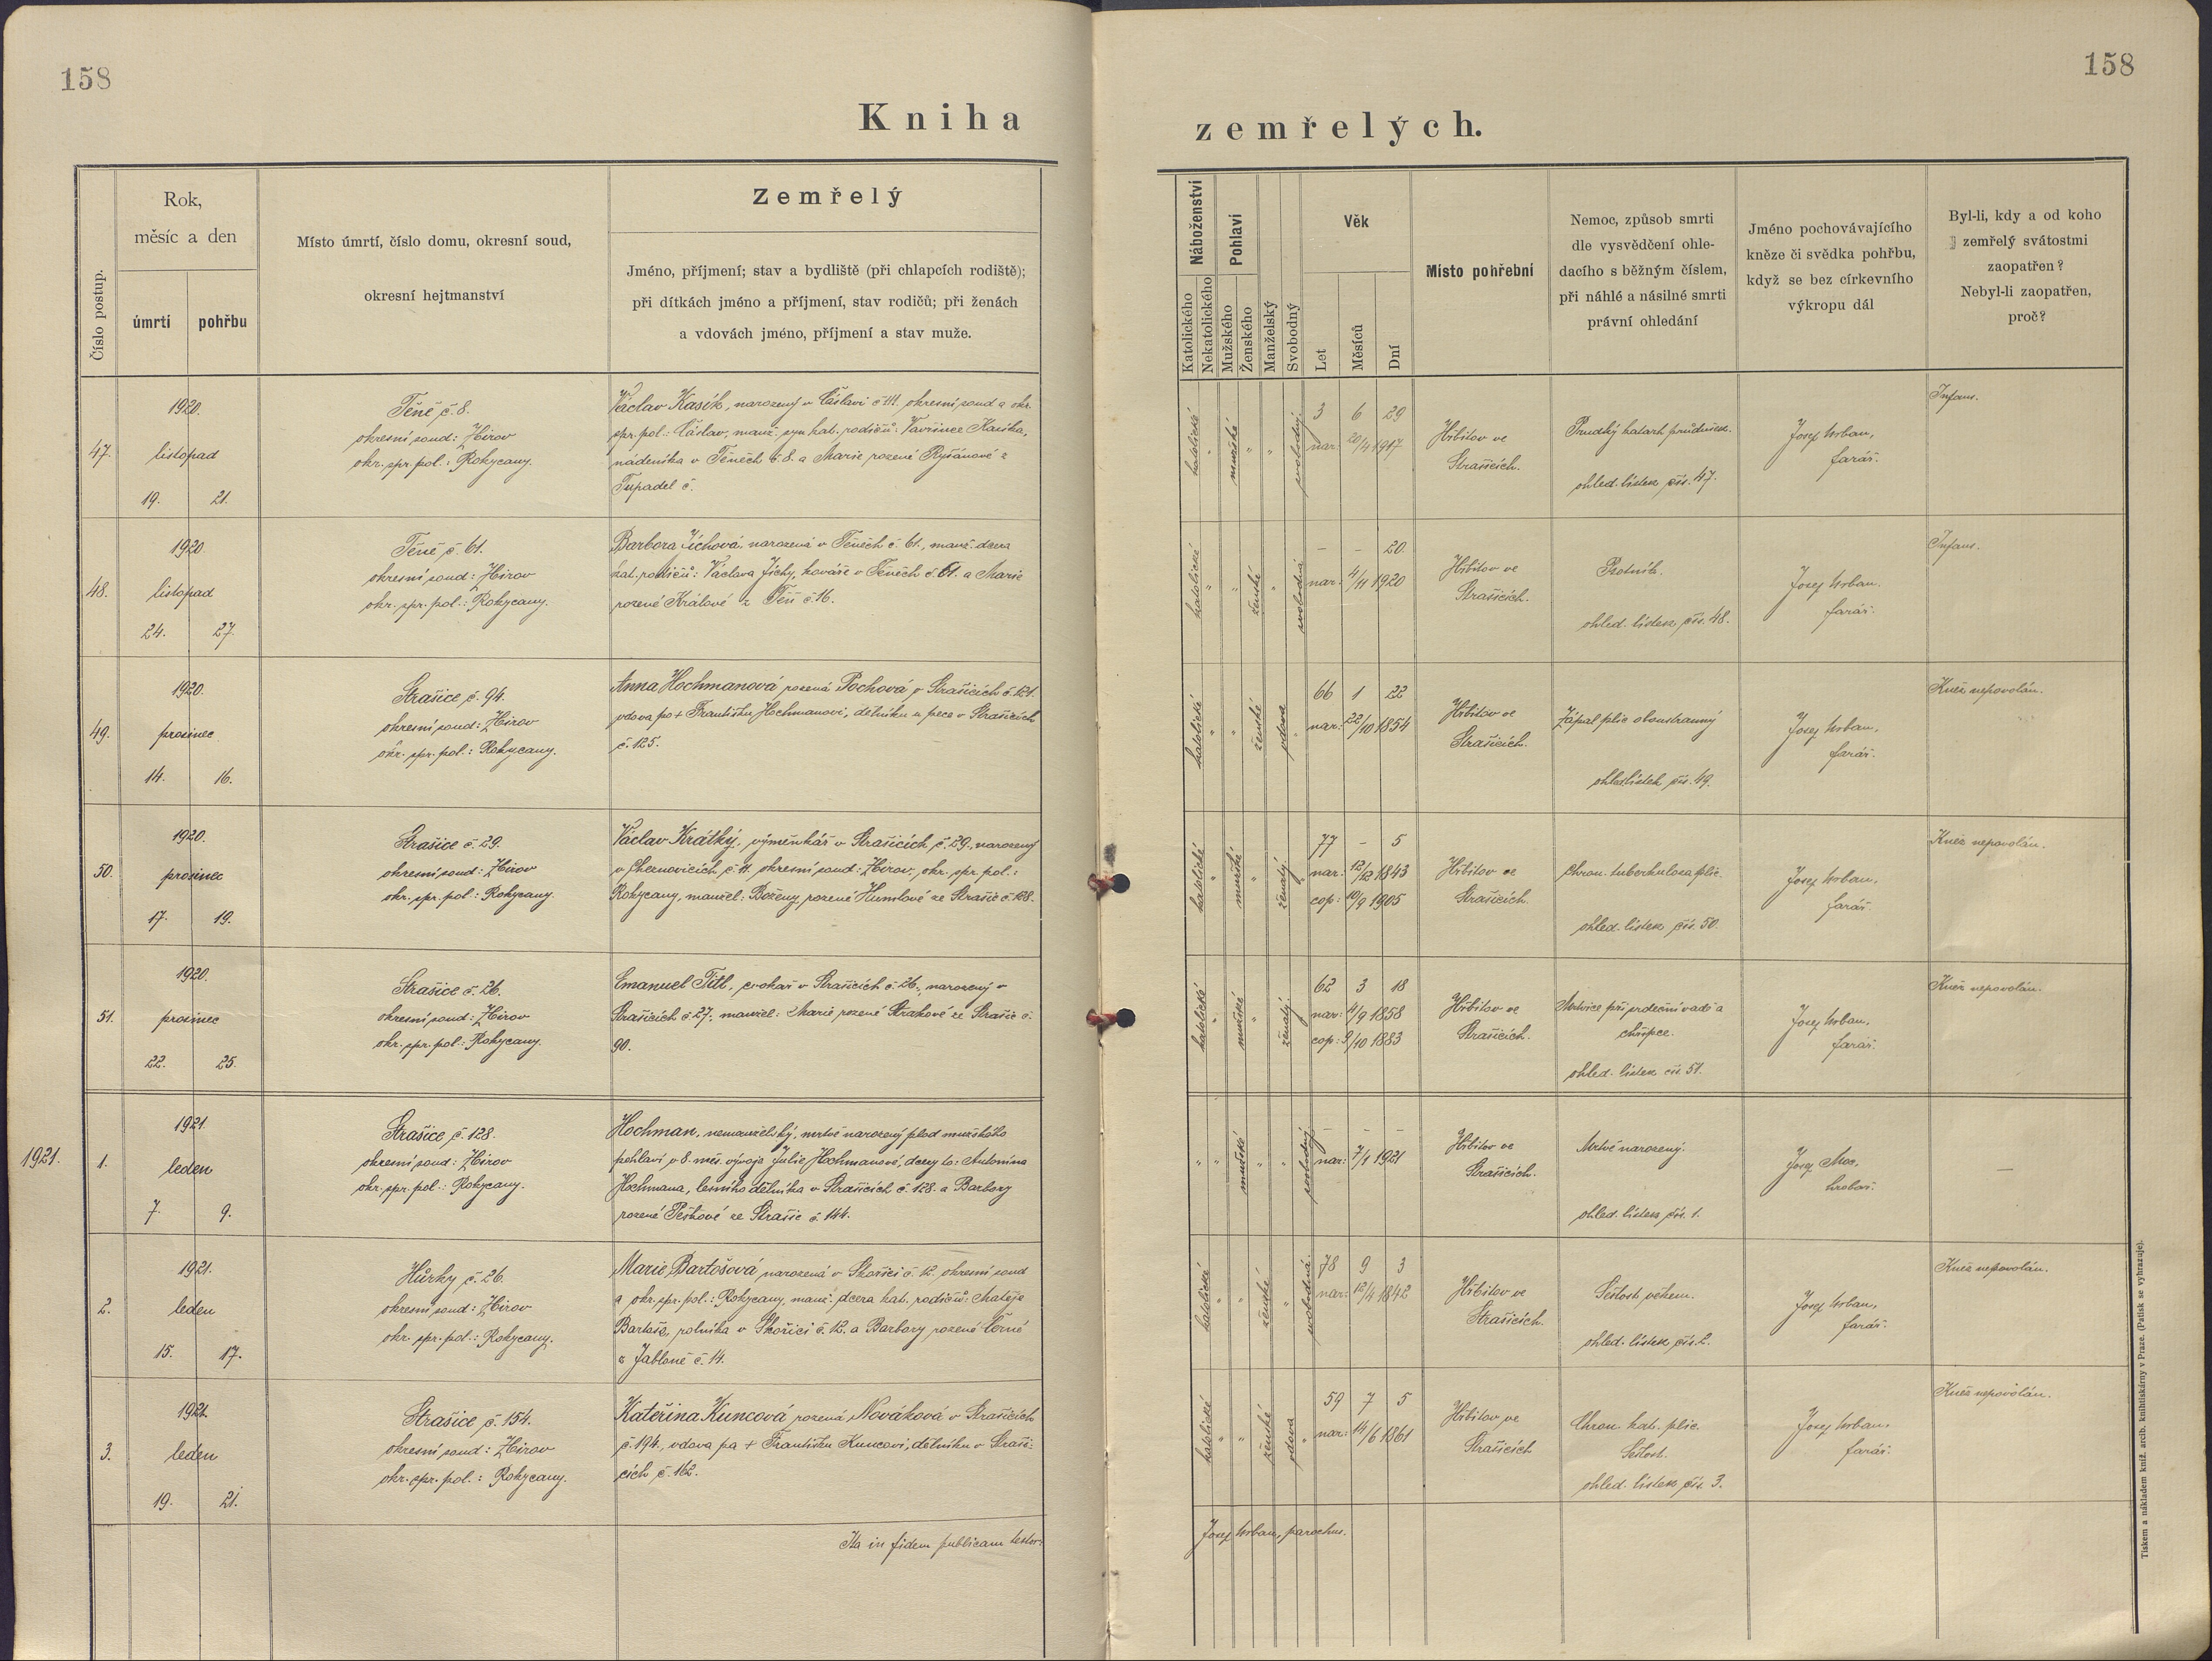 158
158
Kniha
zemřelých.
Číslo postup.
Rok,
měsíc a den
úmrtí
pohřbu
Místo úmrtí, číslo domu, okresní soud,
okresní hejtmanství
Zemřelý
Jméno, příjmení; stav a bydliště (při chlapcích rodiště);
při dítkách jméno a příjmení, stav rodičů; při ženách
a vdovách jméno, příjmení a stav muže.
Náboženství
Katolického
Nekatolického
Pohlaví
Mužského
Ženského
Manželský
Svobodný
Věk
Let
Měsíců
Dní
Místo pohřební
Nemoc, způsob smrti
dle vysvědčení ohle-
dacího s běžným číslem,
při náhlé a násilné smrti
právní ohledání
Jméno pochovávajícího
kněze či svědka pohřbu,
když se bez církevního
výkropu dál
Byl-li, kdy a od koho
zemřelý svátostmi
zaopatřen?
Nebyl-li zaopatřen,
proč?
47.
1920.
listopad
19. 21.
Těně č. 8.
okresní soud: Zbirov
okr. spr. pol.: Rokycany.
Václav Kasík, narozený v Čáslavi č. 111. okresní soud a okr.
spr. pol.: Čáslav, manž. syn kat. rodičů: Vavřince Kasíka,
nádeníka v Těnech č. 8. a Marie rozené Ryšánové z
Tupadel č.
katolické " mužské " " svobodný
3 6 29
nar: 20/4 1917
Hřbitov ve
Strašicích.
Prudký katarh průdušek.
ohled. lístek čís. 47.
Josef Urban,
farář.
Infans.
48.
1920
listopad
24. 27.
Těně č. 61.
okresní soud: Zbirov
okr. spr. pol.: Rokycany.
Barbora Jíchová, narozená v Těnech č. 61., manž. dcera
kat. rodičů: Václava Jíchy, kováře v Těnech č. 61. a Marie
rozené Králové z Těň č. 16.
katolické " " ženské " svobodná
– – 20.
nar: 4/11 1920
Hřbitov ve
Strašicích.
Psotník.
ohled. lístek čís. 48.
Josef Urban.
farář.
Infans.
49.
1920.
prosinec
14. 16.
Strašice č. 94.
okresní soud: Zbirov
okr. spr. pol.: Rokycany.
Anna Hochmanová rozená Pochová v Strašicích č. 121.
vdova po + Františku Hochmanovi, dělníku u pece v Strašicích
č. 125.
katolické " " ženské vdova "
66 1 22
nar: 22/10 1854
Hřbitov ve
Strašicích.
Zápal plic oboustranný
ohled. lístek čís. 49.
Josef Urban,
farář.
Kněz nepovolán.
50.
1920.
prosinec
17. 19.
Strašice č. 29.
okresní soud: Zbirov
okr. spr. pol.: Rokycany.
Václav Krátký, výměnkář v Strašicích č. 29., narozený
v Cheznovicích, č. 11. okresní soud: Zbirov, okr. spr. pol.:
Rokycany, manžel: Boženy, rozené Humlové ze Strašic č. 128.
katolické " mužské " ženatý "
77 – 5
nar: 12/12 1843
cop: 10/9 1905
Hřbitov ve
Strašicích.
Chron. tuberkulosa plic.
ohled. lístek čís. 50.
Josef Urban.
farář.
Kněz nepovolán.
51.
1920.
prosinec
22. 25.
Strašice č. 26.
okresní soud: Zbirov
okr. spr. pol.: Rokycany.
Emanuel Titl, cvokař v Strašicích č. 26., narozený v
Strašicích č. 27. manžel: Marie rozené Strakové ze Strašic č.
90.
katolické " mužské " ženatý "
62 3 18
nar: 4/9 1858
cop: 9/10 1883
Hřbitov ve
Strašicích.
Mrtvice při srdeční vadě a
chřipce.
ohled. lístek čís. 51.
Josef Urban,
farář.
Kněz nepovolán.
1921.
1.
1921.
leden
7. 9.
Strašice č. 128.
okresní soud: Zbirov
okr. spr. pol.: Rokycany.
Hochman, nemanželský, mrtvě narozený plod mužského
pohlaví v 8. měs. vývoje Julie Hochmanové, dcery to: Antonína
Hochmana, lesního dělníka v Strašicích č. 128. a Barbory
rozené Peškové ze Strašic č. 144.
" " mužské " " svobodný
– – –
nar: 7/1 1921
Hřbitov ve
Strašicích.
Mrtvě narozený.
ohled. lístek čís. 1.
Josef Moc,
hrobař.
–
2.
1921.
leden
15. 17.
Hůrky č. 26.
okresní soud: Zbirov
okr. spr. pol.: Rokycany.
Marie Bartošová narozená v Skořici č. 12. okresní soud
a okr. spr. pol.: Rokycany, manž. dcera kat. rodičů: Matěje
Bartoše, rolníka v Skořici č. 12. a Barbory rozené Černé
z Jabloně č. 14.
katolické " " ženské " svobodná
78 9 3
nar: 12/4 1842
Hřbitov ve
Strašicích.
Sešlost věkem.
ohled. lístek čís. 2.
Josef Urban,
farář.
Kněz nepovolán.
3.
1921.
leden
19. 21.
Strašice č. 154.
okresní soud: Zbirov
okr. spr. pol.: Rokycany.
Kateřina Kuncová rozená Nováková v Strašicích
č. 194., vdova po + Františku Kuncovi, dělníku v Straši-
cích č. 162.
katolické " " ženské vdova "
59 7 5
nar: 14/6 1861
Hřbitov ve
Strašicích
Chron. kat. plic.
Sešlost.
ohled. lístek čís. 3.
Josef Urban,
farář.
Kněz nepovolán.
Ita in fidem publicam testor:
Josef Urban, parochus.
Tiskem a nákladem kníž. arcib. knihtiskárny v Praze. (Patisk se vyhrazuje).